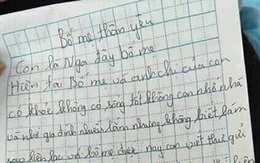 Bố mẹ thân yêu
Con là Nga đây bố mẹ
Hiện tại Bố mẹ và anh chị của con
có khỏe không có sống tốt không con nhớ nhà
và nhớ gia đình nhiều lắm nhưng không biết làm
sao liên lạc với bố mẹ được nay con viết thư gửi